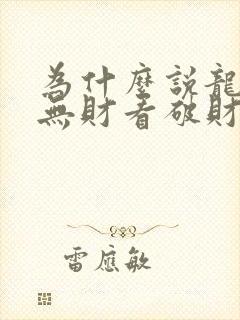 為什麼說龍
無財看破財
雷應敏